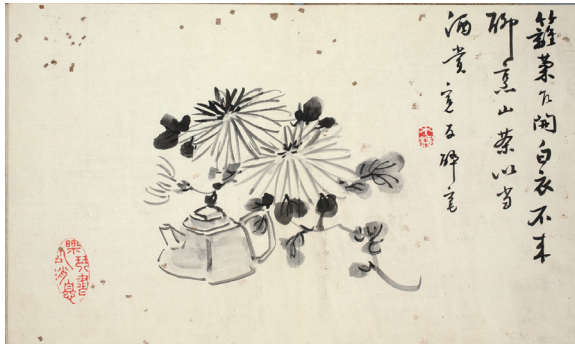 籬菊開白衣不来
聊烹山茶以当
酒賞
樂琴書
以消憂